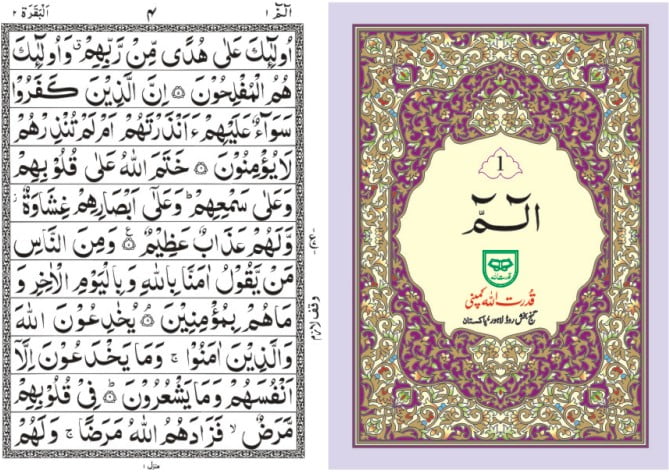 الٓمّٓ ۱
۴
اَلْبَقَرَة ۲
اُولٰٓئِكَ عَلٰى هُدًى مِّنْ رَّبِّهِمْ ۗ وَاُولٰٓئِكَ
هُمُ الْمُفْلِحُوْنَ ۝ اِنَّ الَّذِيْنَ كَفَرُوْا
سَوَآءٌ عَلَيْهِمْ ءَاَنْذَرْتَهُمْ اَمْ لَمْ تُنْذِرْهُمْ
لَا يُؤْمِنُوْنَ ۝ خَتَمَ اللّٰهُ عَلٰى قُلُوْبِهِمْ
وَعَلٰى سَمْعِهِمْ ؕ وَعَلٰٓى اَبْصَارِهِمْ غِشَاوَةٌ ز
وَّلَهُمْ عَذَابٌ عَظِيْمٌ ۝ وَمِنَ النَّاسِ
مَنْ يَّقُوْلُ اٰمَنَّا بِاللّٰهِ وَبِالْيَوْمِ الْاٰخِرِ وَ
مَا هُمْ بِمُؤْمِنِيْنَ ۝ يُخٰدِعُوْنَ اللّٰهَ
وَالَّذِيْنَ اٰمَنُوْا ۚ وَمَا يَخْدَعُوْنَ اِلَّآ
اَنْفُسَهُمْ وَمَا يَشْعُرُوْنَ ۝ فِيْ قُلُوْبِهِمْ
مَّرَضٌ ۙ فَزَادَهُمُ اللّٰهُ مَرَضًا ۚ وَلَهُمْ
وقف لازم
منزل ۱
1
الٓمّٓ
قدرت اللہ
قدرت اللہ کمپنی
گنج بخش روڈ لاہور، پاکستان